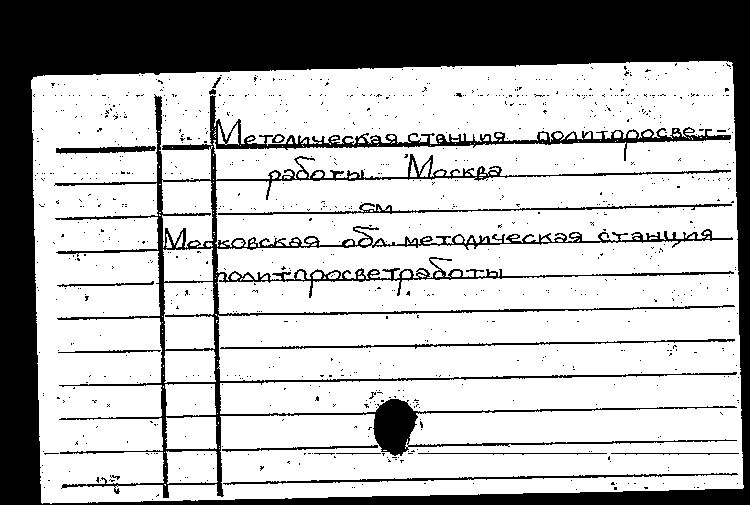 Методическая станция политпросвет-
работы. Москва
см
Московская обл. методическая станция
политпросветработы